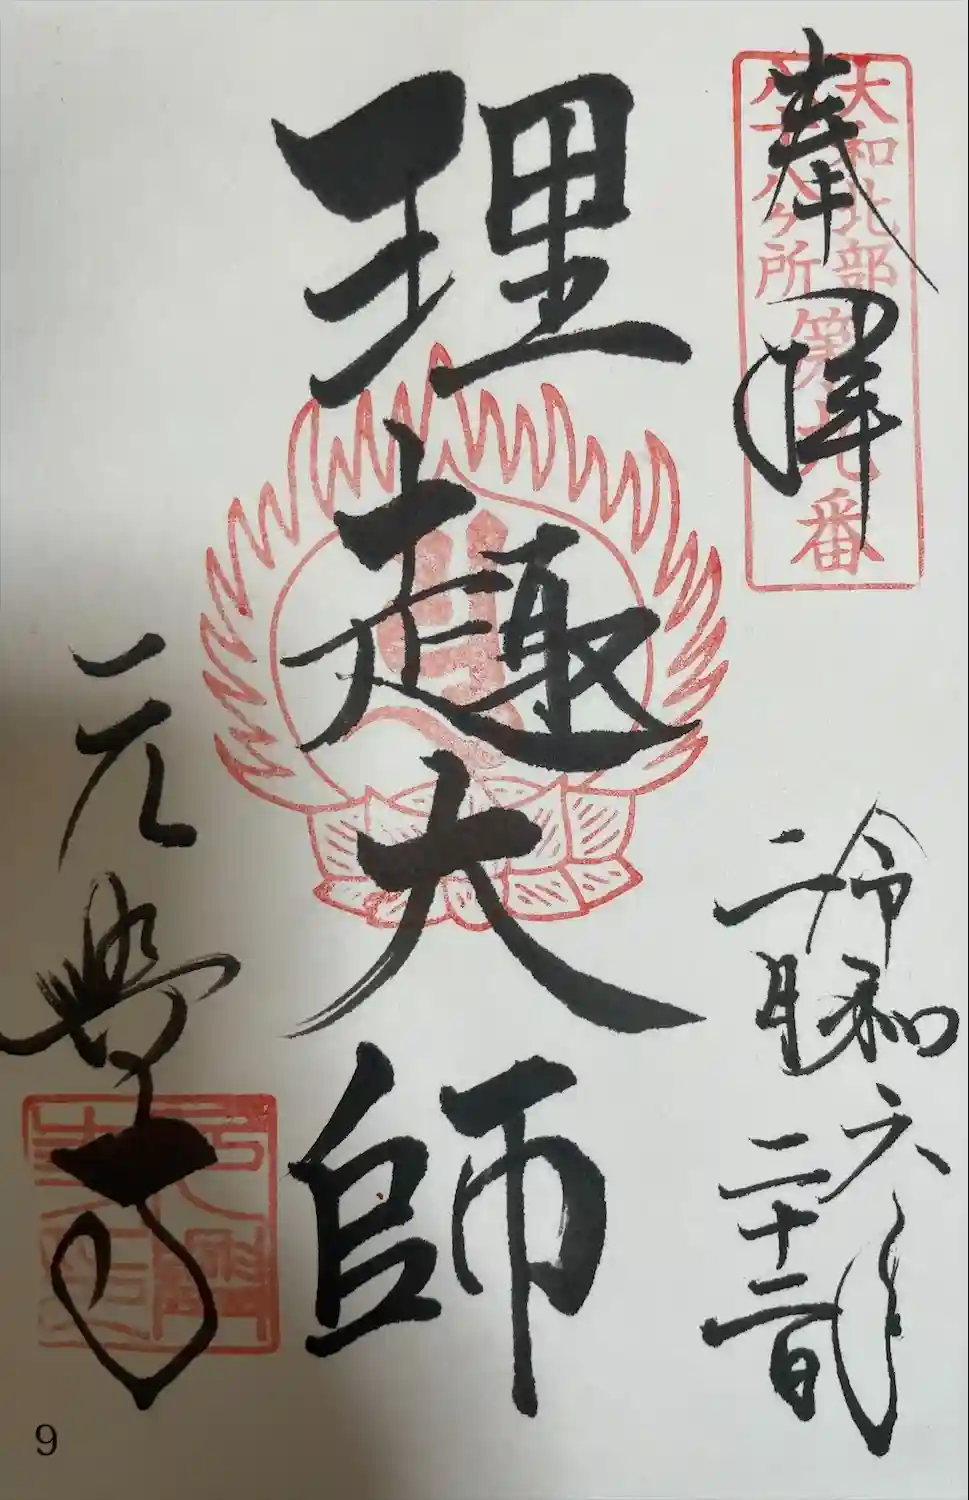 奉拝
大和北部
八十八ヶ所
第九番
令和六年
二月
二十二日
理趣大師
元興寺
9